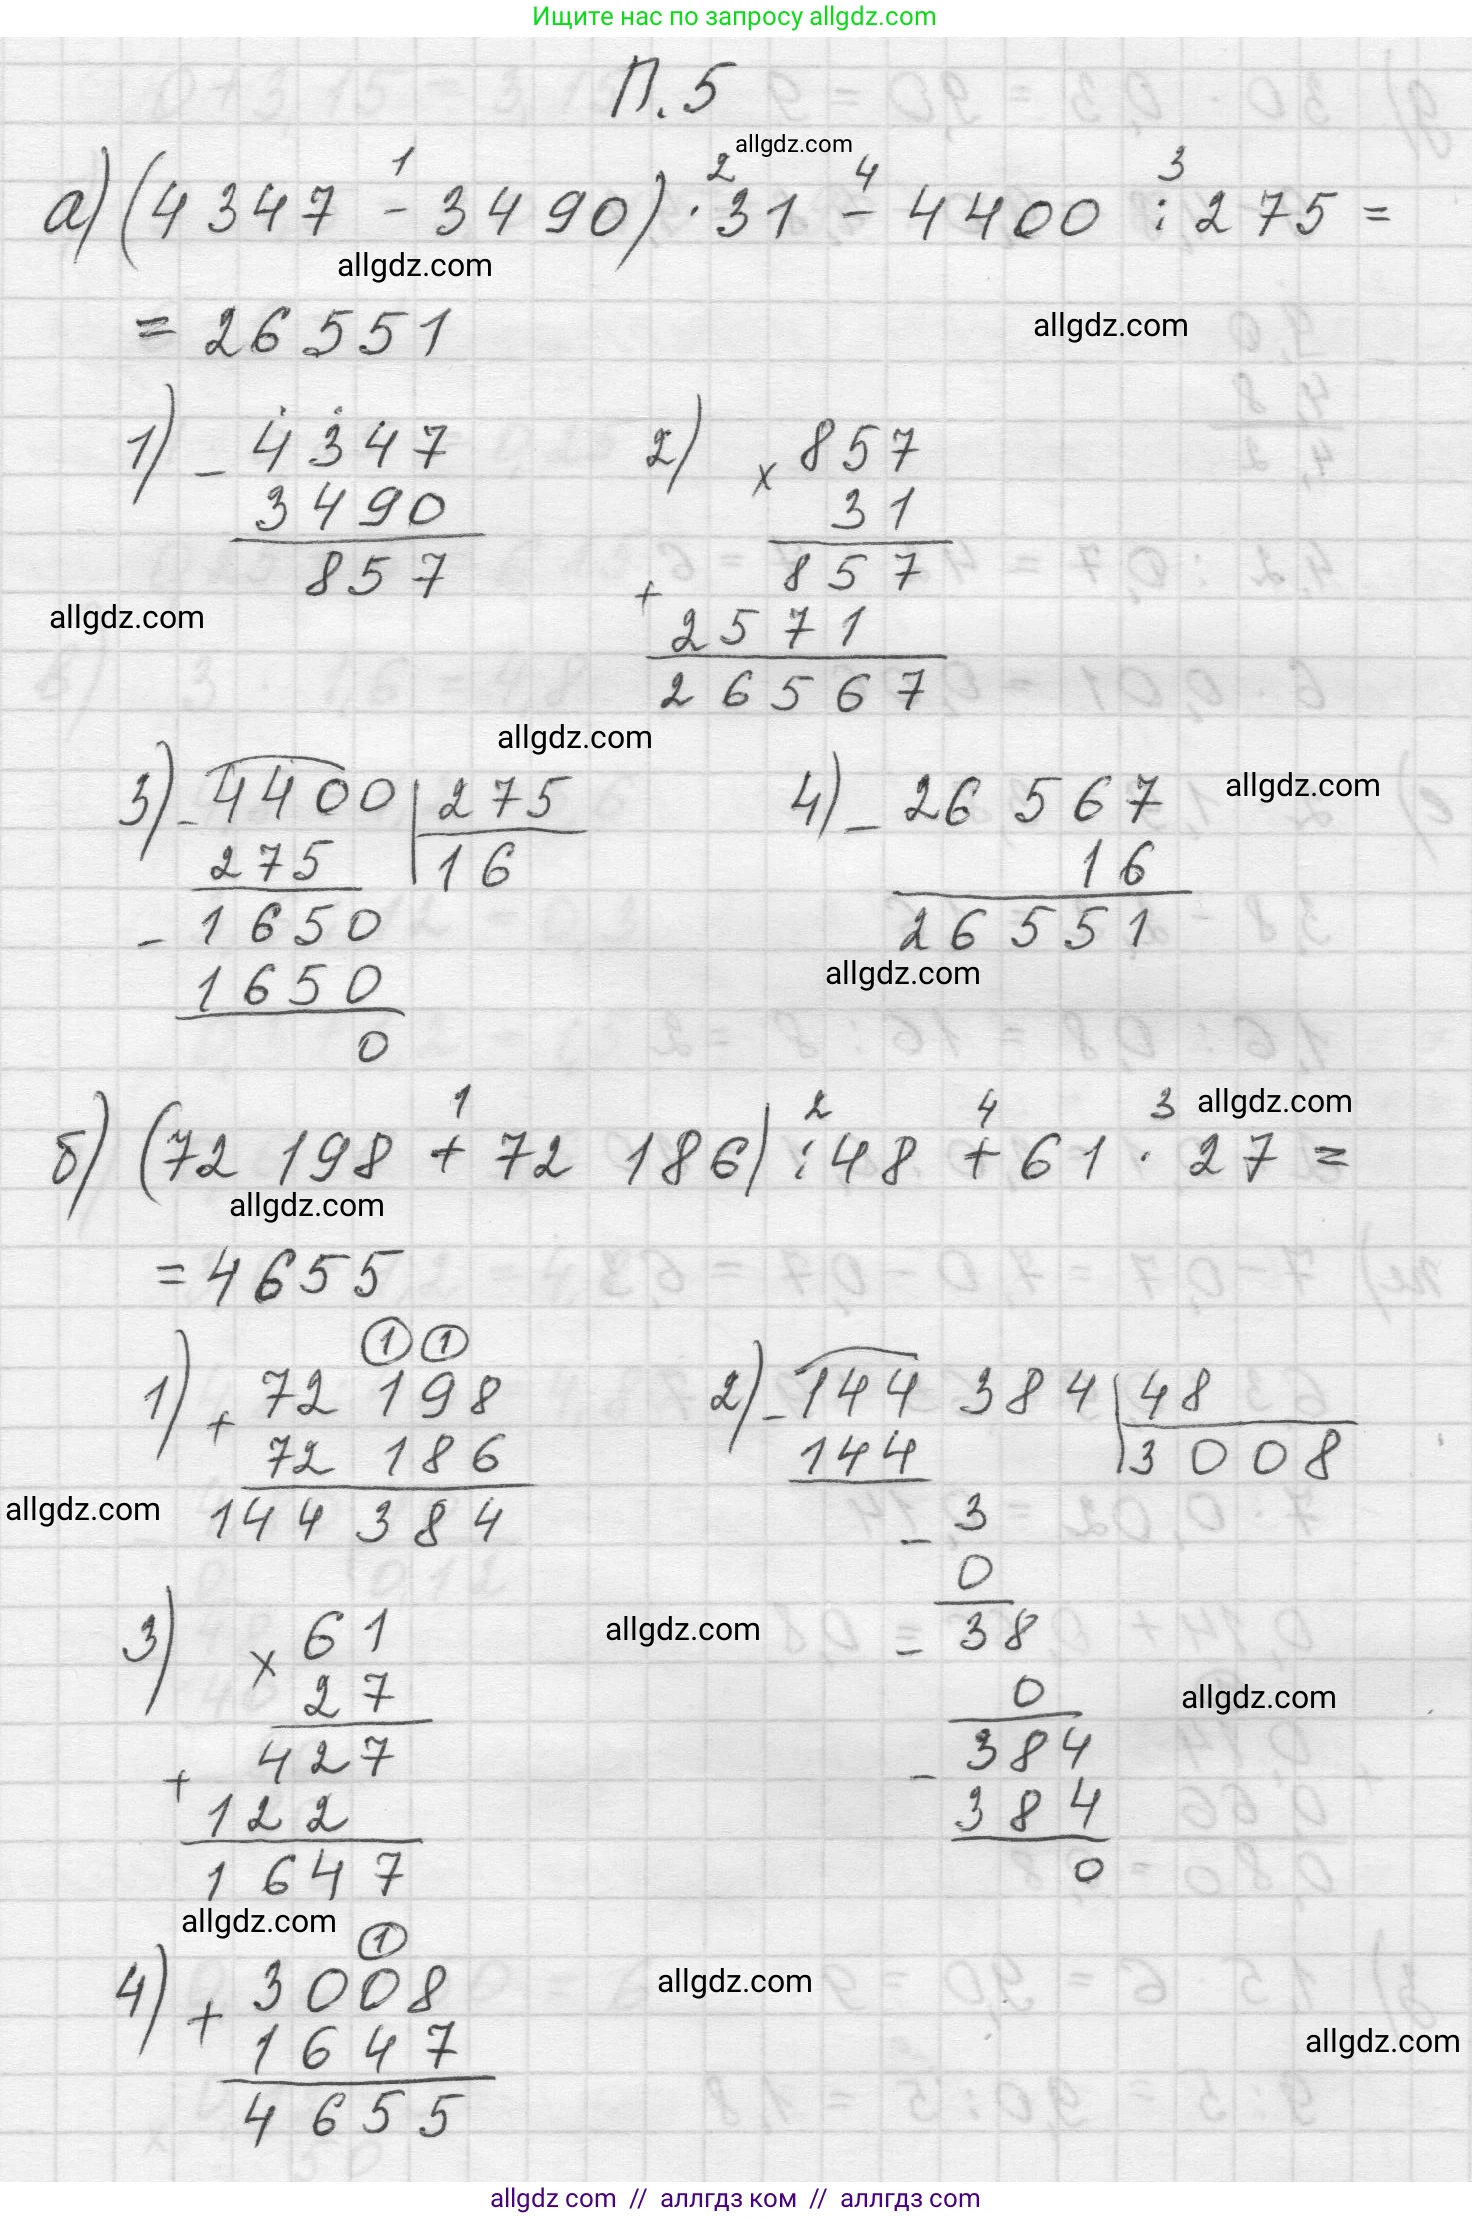 Ищите нас по запросу allgdz.com
П.5
allgdz.com
1 2 4 3
а) (4347 - 3490) · 31 - 4400 : 275 =
allgdz.com
= 26551
allgdz.com
1) - 4347
3490
857
allgdz.com
2) × 857
31
+ 857
2571
26567
allgdz.com
3) - 4400 | 275
275 16
- 1650
1650
0
4) - 26 567
16
26 551
allgdz.com
allgdz.com
1 2 4 3
allgdz.com
б) (72 198 + 72 186) : 48 + 61 · 27 =
allgdz.com
= 4655
1 1
1) + 72 198
72 186
144 384
allgdz.com
2) - 144 384 | 48
144 3008
- 3
0
- 38
0
- 384
384
0
allgdz.com
allgdz.com
3) × 61
27
+ 427
122
1647
allgdz.com
1
4) + 3008
1647
4655
allgdz.com
allgdz.com
allgdz com // аллгдз ком // аллгдз com